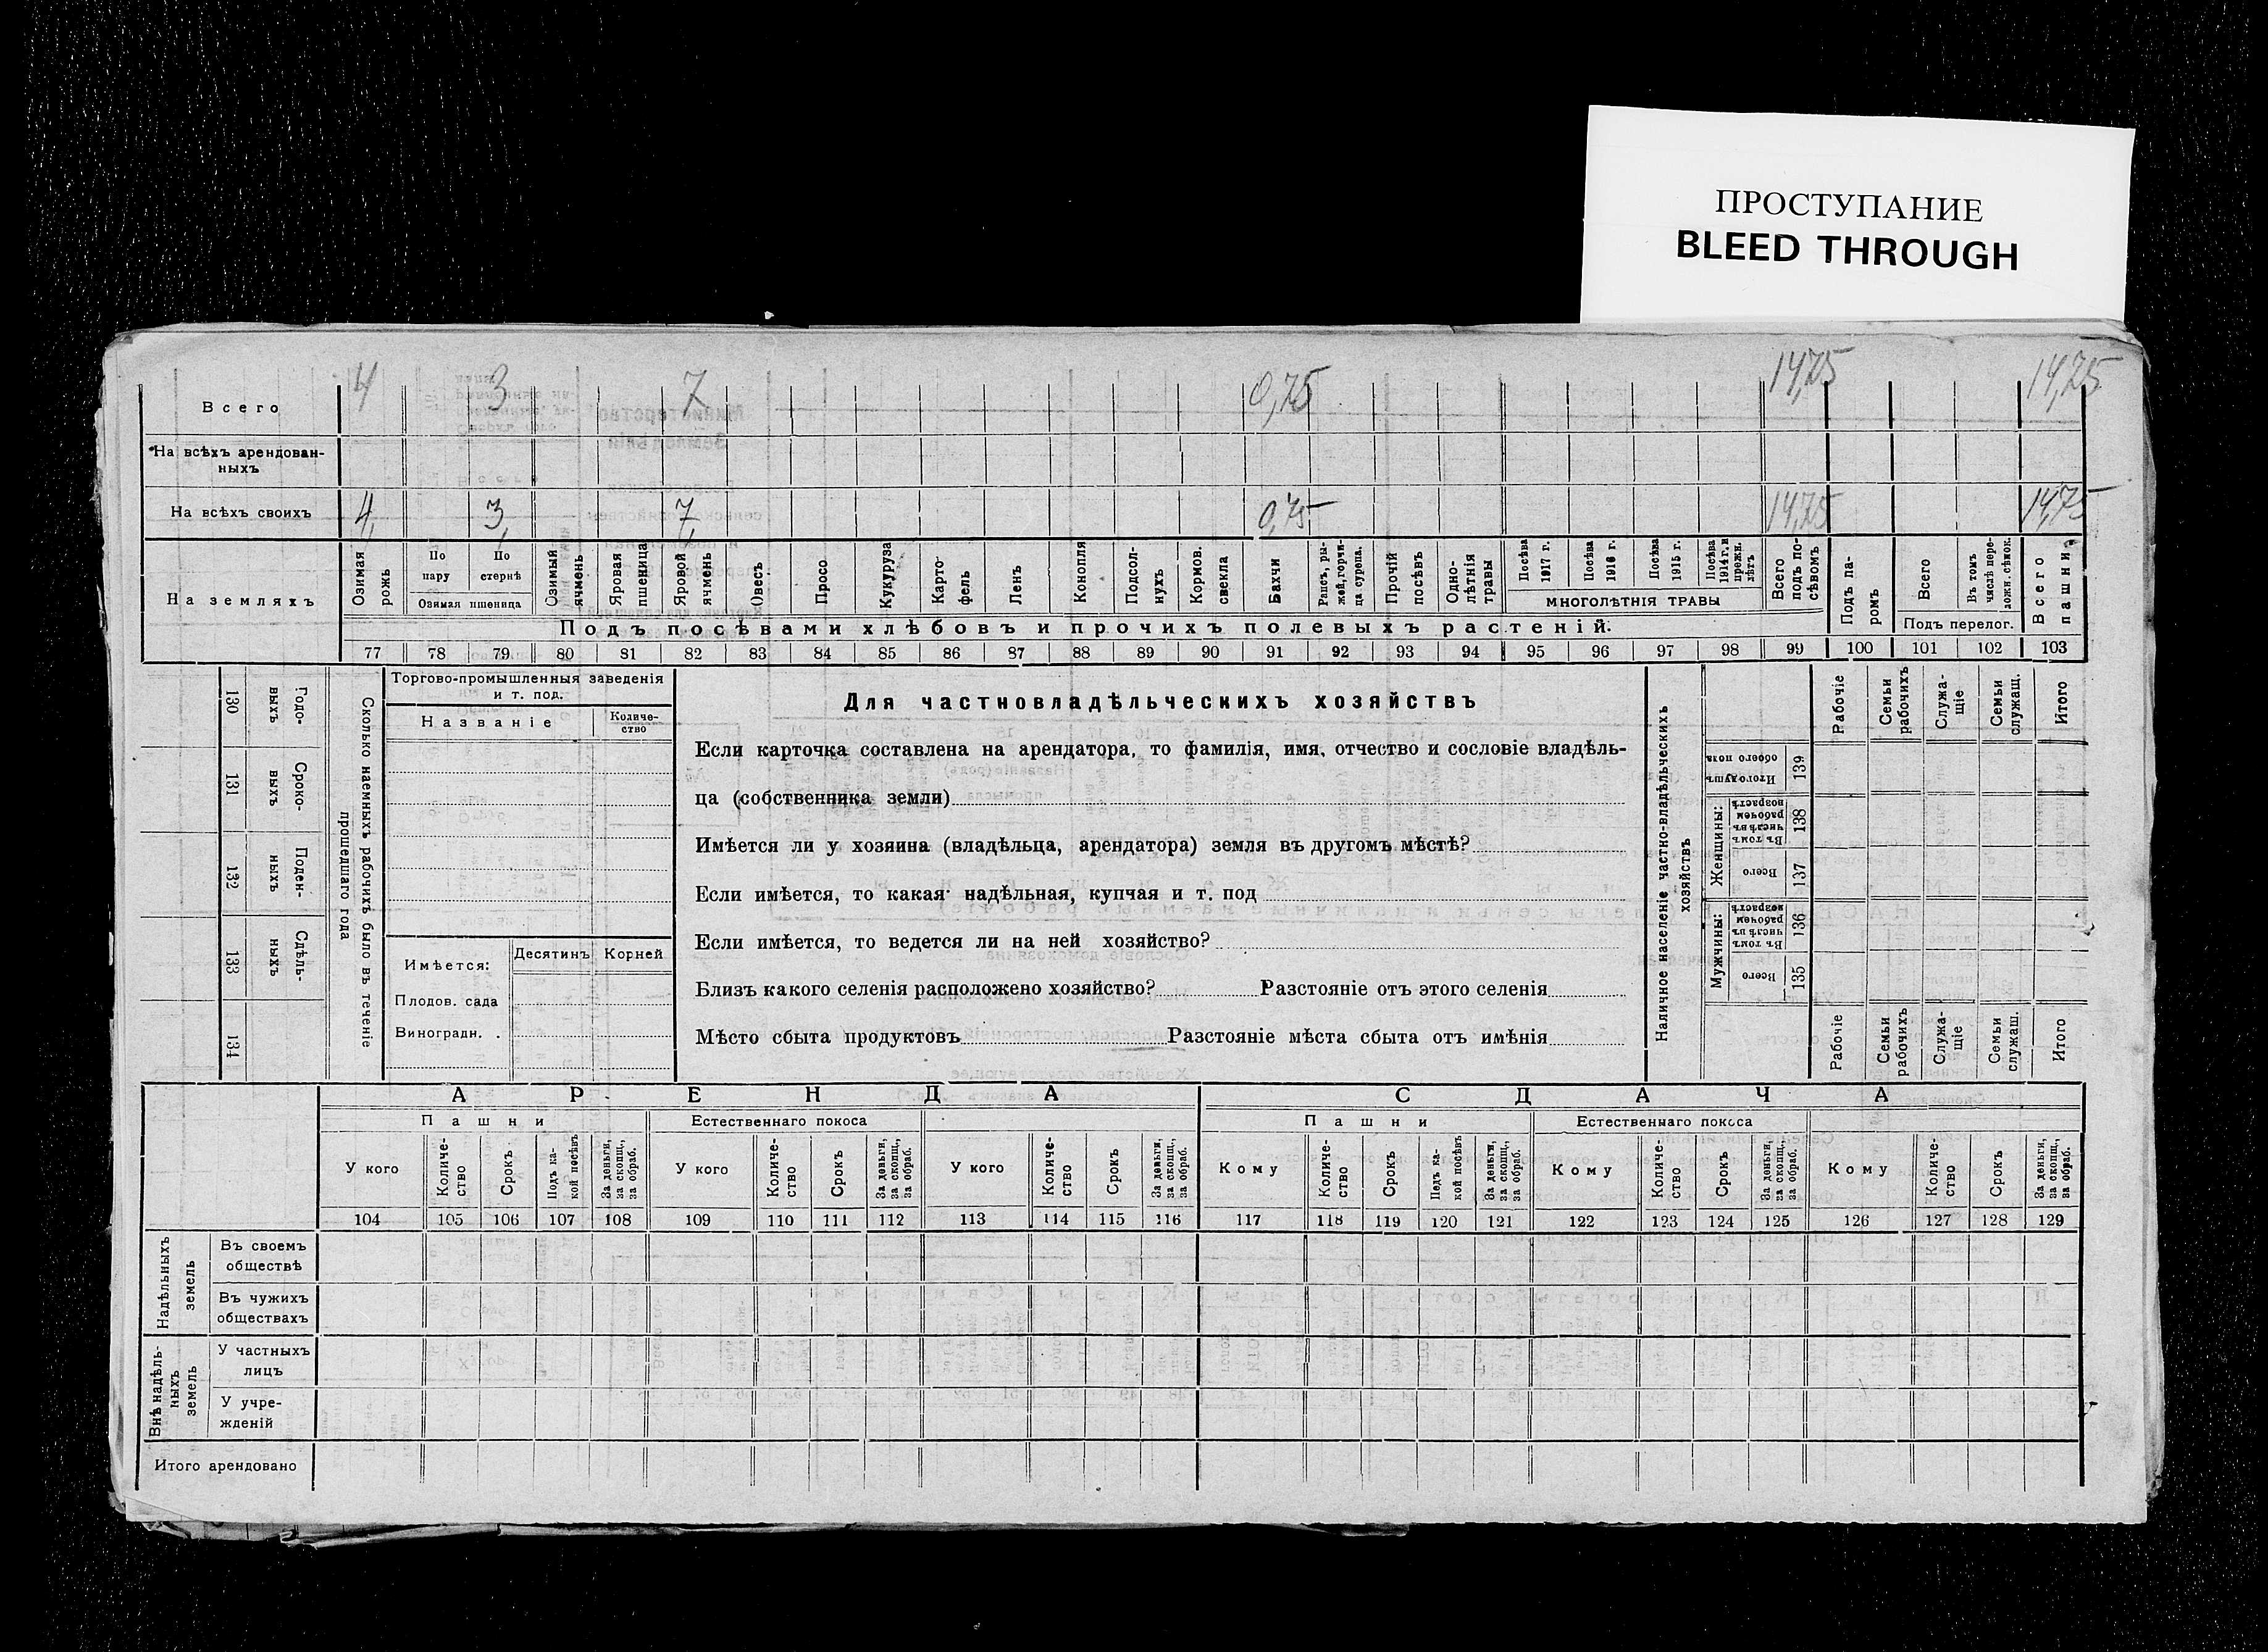 ПРОСТУПАНИЕ
BLEED THROUGH
Всего 4 3 7 0,75 14,75 14,75
На всѣхъ арендован-
ныхъ
На всѣхъ своихъ 4, 3, 7, 0,75 14,75 14,75
На земляхъ
Озимая рожь
По пару
По стернѣ
Озимая пшеница
Озимый ячмень
Яровая пшеница
Яровой ячмень
Овесъ
Просо
Кукуруза
Карто-
фель
Ленъ
Конопля
Подсол-
нухъ
Кормов. свекла
Бахчи
Рапсъ, ры-
жей, горчи-
ца сурепа.
Прочій посѣвъ
Одно-
лѣтнія травы
Посѣва 1917 г.
Посѣва 1916 г.
Посѣва 1915 г.
Посѣва 1914 г. и прежн. лѣтъ
МНОГОЛѢТНІЯ ТРАВЫ
Всего подъ по-
сѣвомъ
Подъ па-
ромъ
Всего
Въ томъ числѣ пере-
ложн. сѣнок.
Подъ перелог.
Всего пашни
Подъ посѣвами хлѣбовъ и прочихъ полевыхъ растеній.
77 78 79 80 81 82 83 84 85 86 87 88 89 90 91 92 93 94 95 96 97 98 99 100 101 102 103
130 Годо-
выхъ
131 Сроко-
выхъ
132 Поден-
ныхъ
133 Сдѣль-
ныхъ
134
Сколько наемныхъ рабочихъ было въ теченіе
прошедшаго года
Торгово-промышленныя заведенія
и т. под.
Названіе
Количе-
ство
Имѣется:
Десятинъ Корней
Плодов. сада
Виноградн. .
Для частновладѣльческихъ хозяйствъ
Если карточка составлена на арендатора, то фамилія, имя, отчество и сословіе владѣль-
ца (собственника земли)
Имѣется ли у хозяина (владѣльца, арендатора) земля въ другомъ мѣстѣ?
Если имѣется, то какая: надѣльная, купчая и т. под
Если имѣется, то ведется ли на ней хозяйство?
Близъ какого селенія расположено хозяйство? Разстояніе отъ этого селенія
Мѣсто сбыта продуктовъ Разстояніе мѣста сбыта отъ имѣнія
Наличное населеніе частно-владѣльческихъ
хозяйствъ
Рабочіе
Семьи рабочихъ
Служа-
щіе
Семьи служащ.
Итого
Итого душъ обоего пола 139
Женщины:
Въ томъ числѣ въ рабочем возрастѣ 138
Всего 137
Мужчины:
Въ томъ числѣ въ рабочем возрастѣ 136
Всего 135
Рабочіе
Семьи рабочихъ
Служа-
щіе
Семьи служащ.
Итого
АРЕНДА СДАЧА
Пашни Естественнаго покоса Пашни Естественнаго покоса
У кого
Количе-
ство
Срокъ
Подъ ка-
кой посѣвъ
За деньги, за скопщ., за обраб.
У кого
Количе-
ство
Срокъ
За деньги, за скопщ., за обраб.
У кого
Количе-
ство
Срокъ
За деньги, за скопщ., за обраб.
Кому
Количе-
ство
Срокъ
Подъ ка-
кой посѣвъ
За деньги, за скопщ., за обраб.
Кому
Количе-
ство
Срокъ
За деньги, за скопщ., за обраб.
Кому
Количе-
ство
Срокъ
За деньги, за скопщ., за обраб.
104 105 106 107 108 109 110 111 112 113 114 115 116 117 118 119 120 121 122 123 124 125 126 127 128 129
Надѣльныхъ
земель
Въ своемъ
обществѣ
Въ чужихъ
обществахъ
Внѣ надѣль-
ныхъ
земель
У частныхъ
лицъ
У учре-
жденій
Итого арендовано